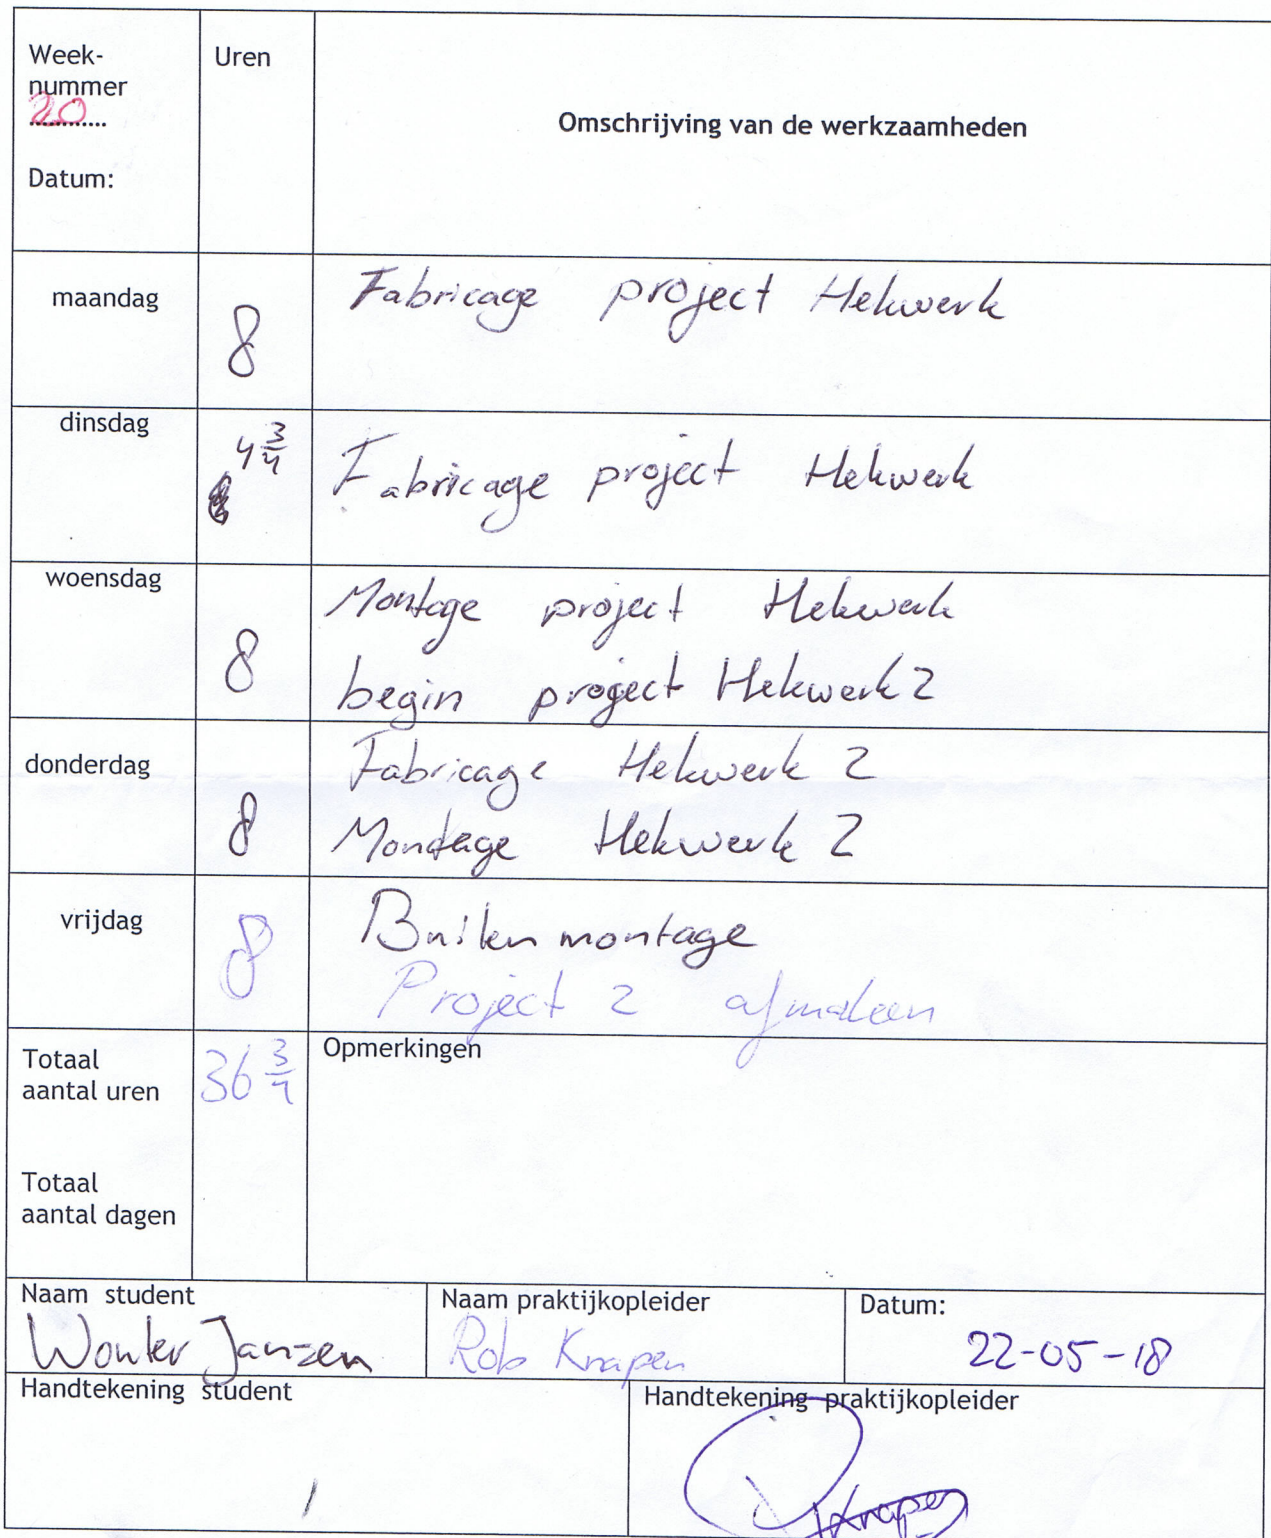 Week-
nummer
20
Datum:
Uren
Omschrijving van de werkzaamheden
maandag
8
Fabricage project Hekwerk
dinsdag
4 3/4
Fabricage project Hekwerk
woensdag
8
Montage project Hekwerk
begin project Hekwerk 2
donderdag
8
Fabricage Hekwerk 2
Montage Hekwerk 2
vrijdag
8
Buiten montage
Project 2 afmaken
Totaal
aantal uren
36 3/4
Opmerkingen
Totaal
aantal dagen
Naam student
Wouter Janszen
Naam praktijkopleider
Rob Knapen
Datum:
22-05-18
Handtekening student
Handtekening praktijkopleider
RKnapen